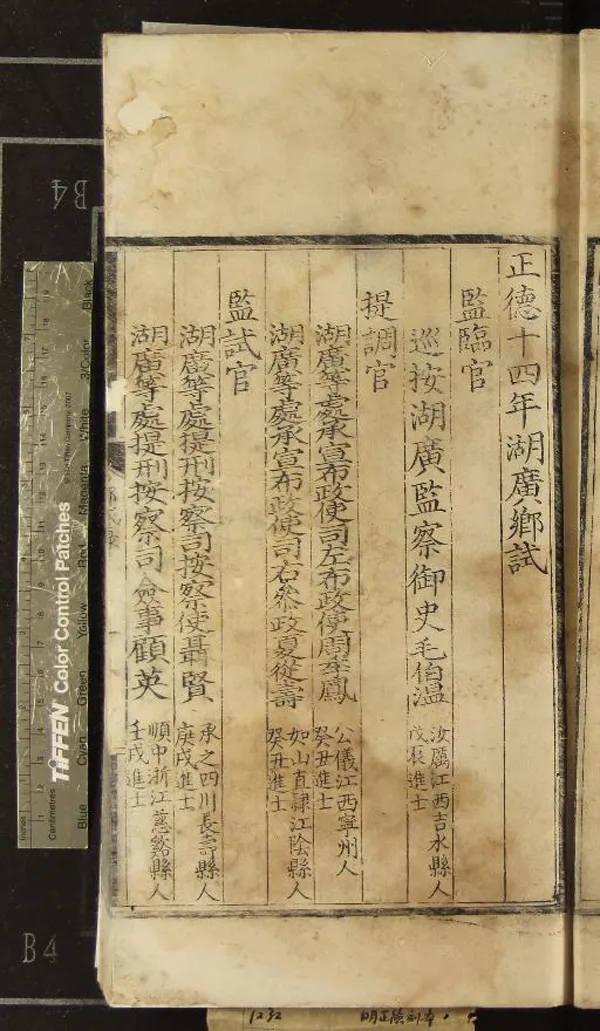 正德十四年湖廣鄉試
監臨官
巡按湖廣監察御史毛伯溫
汝厲江西吉水縣人
戊辰進士
提調官
湖廣等處承宣布政使司左布政使周季鳳
公儀江西寧州人
癸丑進士
湖廣等處承宣布政使司右參政夏從壽
如山直隸江陰縣人
癸丑進士
監試官
湖廣等處提刑按察司按察使聶賢
承之四川長壽縣人
庚戌進士
湖廣等處提刑按察司僉事顧英
順中浙江慈谿縣人
壬戌進士
B4
B4
TIFFEN Color Control Patches
© The Tiffen Company, 2007
Inches
Centimetres
Blue Cyan Green Yellow Red Magenta White 3/Color Black